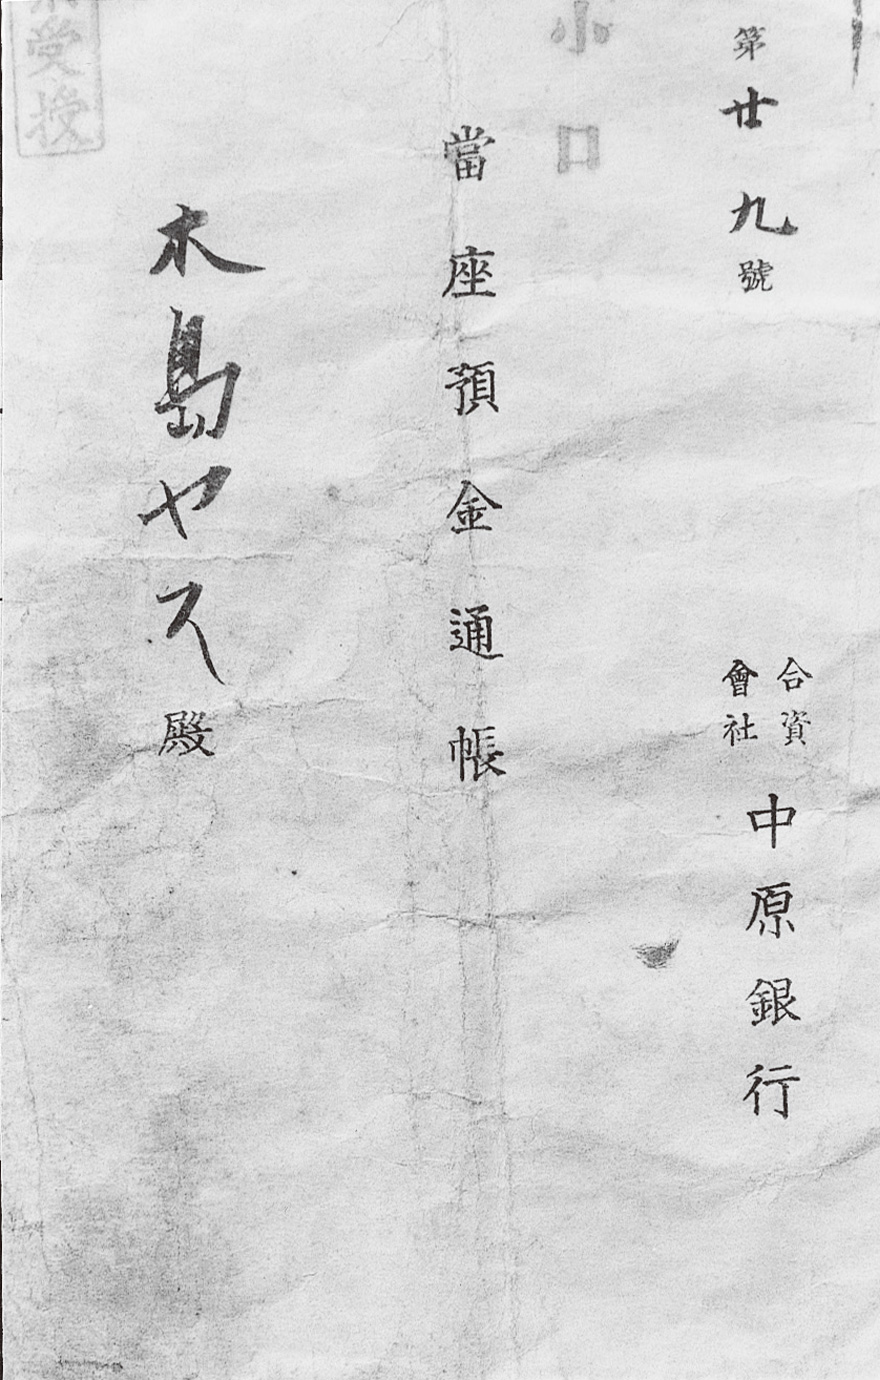 第廿九號
合資
會社
中原銀行
小口
當座預金通帳
木島ヤス殿
受授